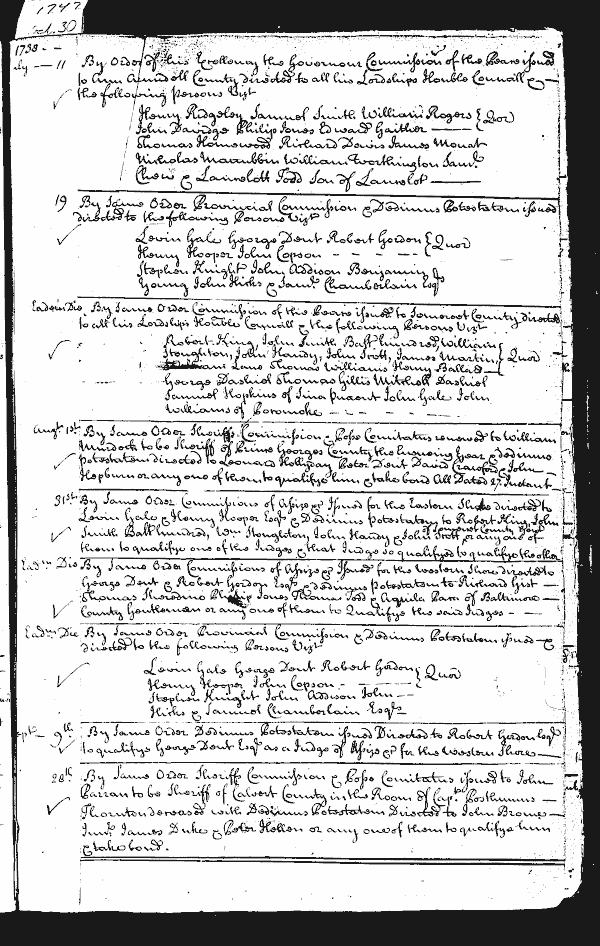 1747
Oct. 30
1738 - -
July - 11 By Order of his Excellency the Governour Commission of the Peace issued
to Ann Arundell County directed to all his Lordships Honble Councill &
the following Persons Vizt
Henry Ridgeley Samuel Smith William Rogers } Quor
John Davidge Philip Jones Edward Gaither
Thomas Homewood Richard Davis James Mouat
Nicholas Maccubbin William Worthington Saml.
Chew & Lancelott Todd Son of Lancelot
19 By Same Order Provincial Commission & Dedimus Potestatem issued
directed to the following Persons Vizt
Levin Gale George Dent Robert Gordon } Quor
Henry Hooper John Copson - - - -
Stephen Knight John Addison Benjamin
Young John Hicks & Saml. Chamberlain Esqrs
Eadem Die By Same Order Commission of the Peace issued to Somerset County directed
to all his Lordships Honble Councill & the following Persons Vizt
Robert King, John Smith Balt. hundred, William
Stoughton, John Handy, John Scott, James Martin, } Quor
Lane Thomas Williams Henry Ballard
George Dashiel Thomas Gillis Mitchell Dashiel
Samuel Hopkins of John Gale John
Williams of Pocomoke - - - -
Augt 1st By Same Order Sheriffs Commission & Posse Comitatus renewed to William
Murdock to be Sheriff of Prince Georges County the Ensuing Year & dedimus
potestatem directed to Leonard Hollyday Peter Dent David Crauford & John
Hepburn or any one of them to qualify him & take bond All Dated 27. Instant
31st By Same Order Commissions of Assize &c Issued for the Eastern Shore directed to
Levin Gale & Henry Hooper Esqrs & Dedimus potestatem to Robert King, John
Somerset County Gent
Smith Balt hundred, Wm. Stoughton, John Handy & John Scott or any one of
them to qualifye one of the Judges & that Judge so qualifyed to qualifye the other
Eadem Die By Same Order Commissions of Assize &c Issued for the Western Shore directed to
George Dent & Robert Gordon Esqrs & dedimus potestatem to Richard Gist
Thomas Sheredine Philip Jones Thomas Todd & Aquila Paca of Baltimore
County Gentlemen or any one of them to Qualifye the said Judges - -
Eadm Die By Same Order Provincial Commission & Dedimus Potestatem issued &
directed to the following Persons Vizt
Levin Gale George Dent Robert Gordon } Quor
Henry Hooper John Copson - - - -
Stephen Knight John Addison John
Hicks & Samuel Chamberlain Esqrs
Septr 9th By Same Order Dedimus Potestatem issued Directed to Robert Gordon Esqr
to qualifye George Dent Esqr as a Judge of Assize &c for the Western Shore
28th By Same Order Sheriff Commission & Posse Comitatus issued to John
Parran to be Sheriff of Calvert County in the Room of Capt. Posthumus
Thornton deceased with Dedimus Potestatem Directed to John Broome
Junr. James Duke & Peter Hellen or any one of them to qualifye him
& take bond.